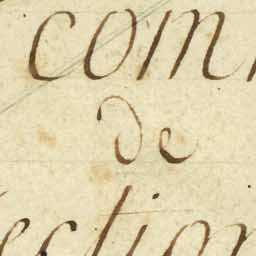 com
de
ection